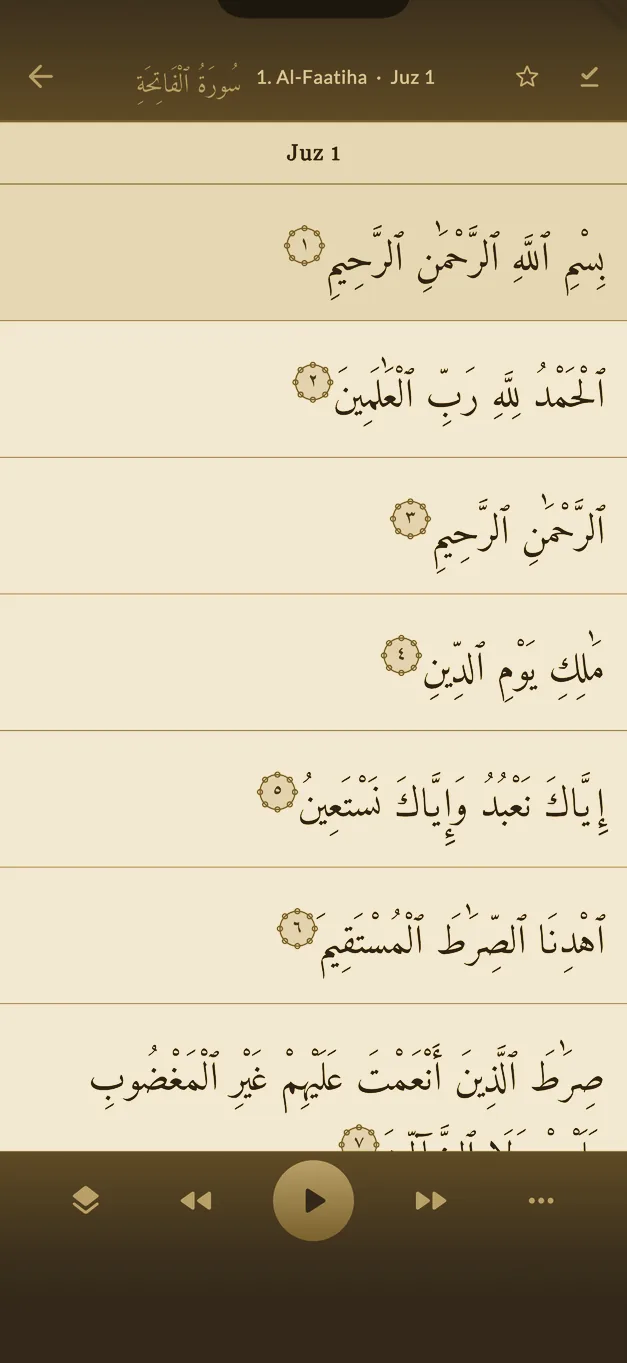 سُورَةُ ٱلْفَاتِحَةِ 1. Al-Faatiha · Juz 1
Juz 1
بِسْمِ ٱللَّهِ ٱلرَّحْمَٰنِ ٱلرَّحِيمِ ١
ٱلْحَمْدُ لِلَّهِ رَبِّ ٱلْعَٰلَمِينَ ٢
ٱلرَّحْمَٰنِ ٱلرَّحِيمِ ٣
مَٰلِكِ يَوْمِ ٱلدِّينِ ٤
إِيَّاكَ نَعْبُدُ وَإِيَّاكَ نَسْتَعِينُ ٥
ٱهْدِنَا ٱلصِّرَٰطَ ٱلْمُسْتَقِيمَ ٦
صِرَٰطَ ٱلَّذِينَ أَنْعَمْتَ عَلَيْهِمْ غَيْرِ ٱلْمَغْضُوبِ
٧